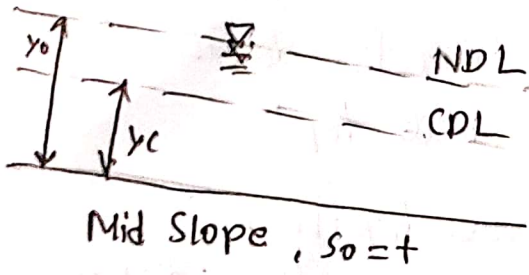 yo
NDL
CDL
yc
Mid Slope, So=+